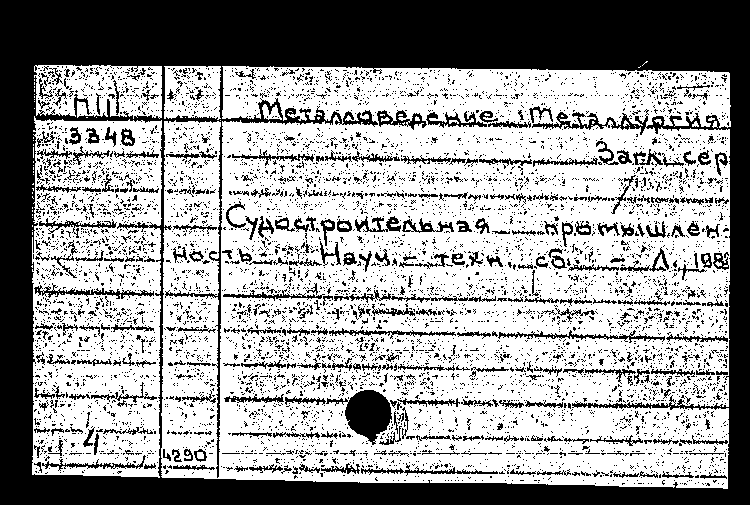 П111
3348
Металловедение. Металлургия.
Загл. сер
Судостроительная промышлен-
ность: Науч.-техн. сб. - Л., 198
4
4290